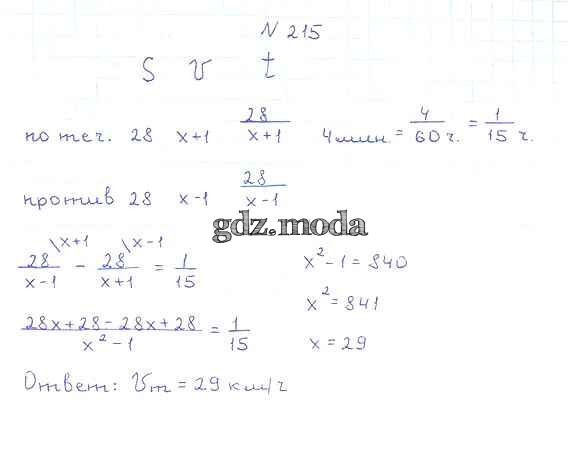 N 215
S v t
по теч. 28 x+1 28/(x+1) 4 мин. = 4/60 ч. = 1/15 ч.
против 28 x-1 28/(x-1)
gdz.moda
28/(x-1) \x+1 - 28/(x+1) \x-1 = 1/15
(28x+28-28x+28)/(x²-1) = 1/15
x²-1 = 840
x² = 841
x = 29
Ответ: Vт = 29 км/ч